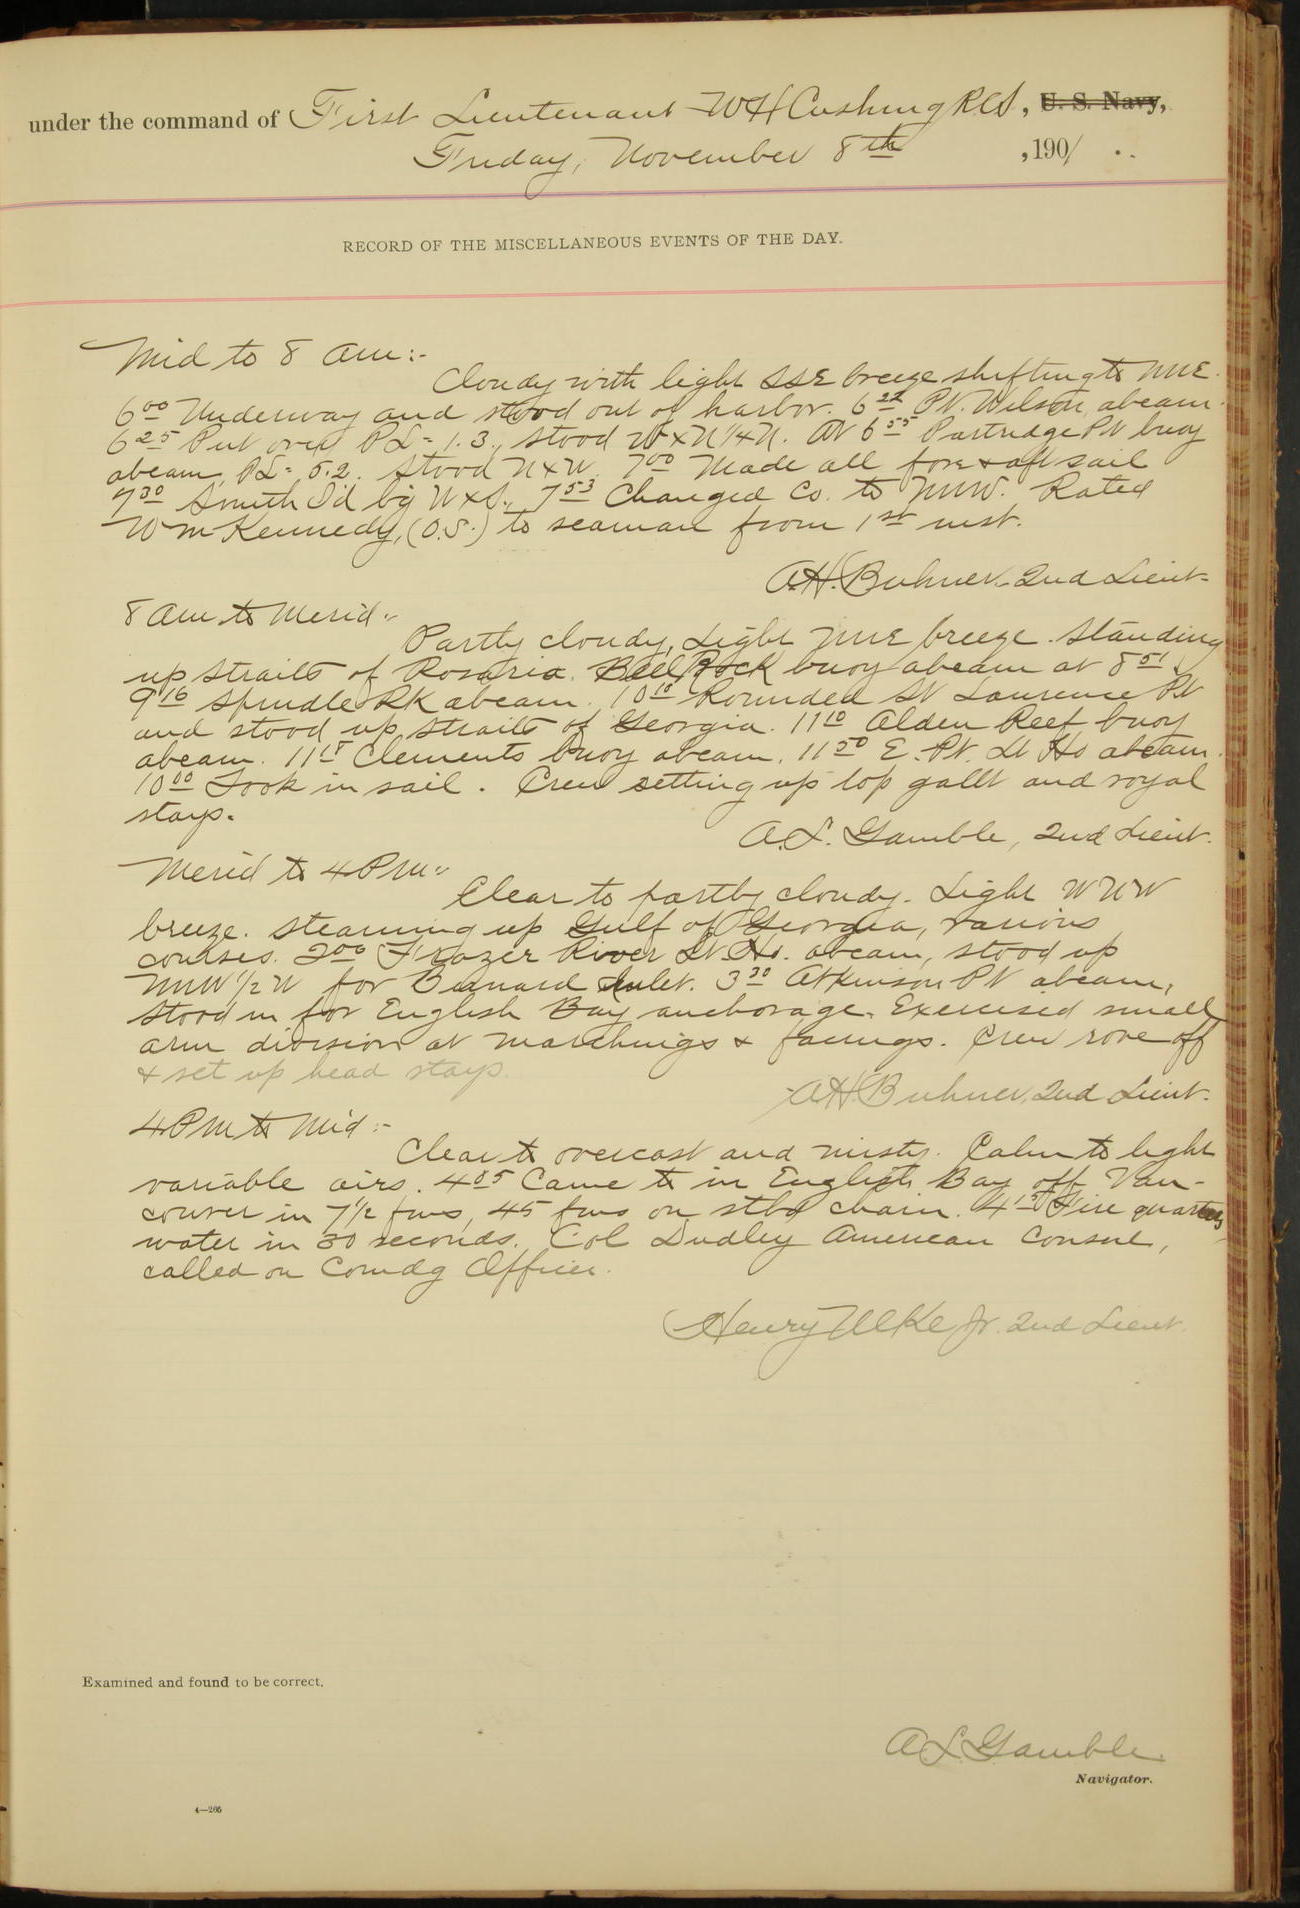 under the command of First Lieutenant W H Cushing RCS, U. S. Navy,
Friday, November 8th, 1901
RECORD OF THE MISCELLANEOUS EVENTS OF THE DAY.
Mid to 8 am:-
Cloudy with light SSE breeze shifting to NNE.
6 00 Underway and stood out of harbor. 6 22 Pt. Wilson abeam.
6 25 Put over PL = 1.3., stood W x N 1/4 N. At 6 55 Partridge Pt buoy
abeam, PL = 5.2. Stood N x W. 7 00 Made all fore & aft sail
7 30 Smith I'd bg W x S., 7 53 Changed Co. to NNW. Rated
Wm Kennedy, (O.S.) to seaman from 1st inst.
A.H. Buhner 2nd Lieut.
8 am to Merid:-
Partly cloudy, Light NNE breeze. Standing
up straits of Rosaria. Bell Rock buoy abeam at 8 51.
9 16 Spindle Rk abeam. 10 10 Rounded St Laurence Pt
and stood up straits of Georgia. 11 10 Alden Reef buoy
abeam. 11 18 Clements buoy abeam. 11 50 E. Pt. Lt Ho abeam.
10 00 Took in sail. Crew setting up top gallt and royal
stays.
A.L. Gamble, 2nd Lieut.
Merid to 4 Pm:-
Clear to partly cloudy. Light WNW
breeze. Steaming up Gulf of Georgia, various
courses. 2 00 Frazer River Lt. Ho. abeam, stood up
NNW 1/2 W for Burrard Inlet. 3 30 Atkinson Pt abeam,
stood in for English Bay anchorage. Exercised small
arm division at marchings & facings. Crew rove off
& set up head stays.
A.H. Buhner, 2nd Lieut.
4 Pm to Mid:-
Clear to overcast and misty. Calm to light
variable airs. 4 05 Came to in English Bay off Van-
couver in 7 1/2 fms, 45 fms on stbd chain. 4 15 Fire quarters,
water in 30 seconds. Col Dudley American Consul,
called on Comdg Officer.
Henry Ulke Jr. 2nd Lieut.
Examined and found to be correct.
A L Gamble
Navigator.
4—265